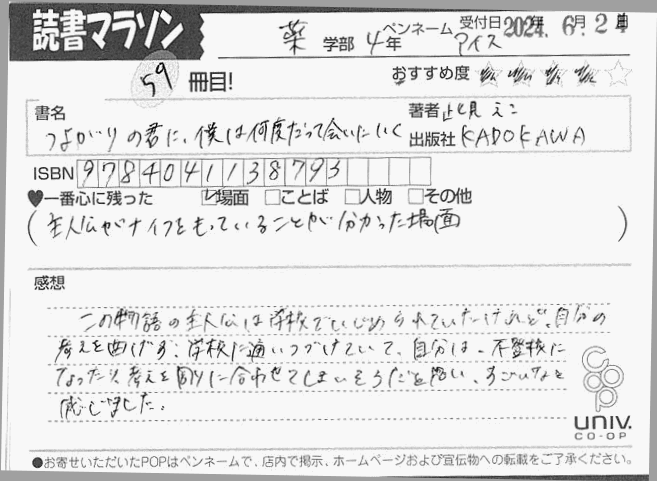 読書マラソン
薬 学部 4年
ペンネーム アイス
受付日 2024年 6月 24日
59 冊目!
おすすめ度
書名
つよがりの君に、僕は何度だって会いにいく
著者 此見えこ
出版社 KADOKAWA
ISBN 9784041138793
♥一番心に残った □場面 □ことば □人物 □その他
(主人公がナイフをもっていることが分かった場面)
感想
この物語の主人公は学校でいじめられていたけれど、自分の
考えを曲げず、学校に通いつづけていて、自分は、不登校に
なったり、考えを周りに合わせてしまいそうだと思い、すごいなと
感じました。
coop
UNIV.
CO-OP
●お寄せいただいたPOPはペンネームで、店内で掲示、ホームページおよび宣伝物への転載をご了承ください。